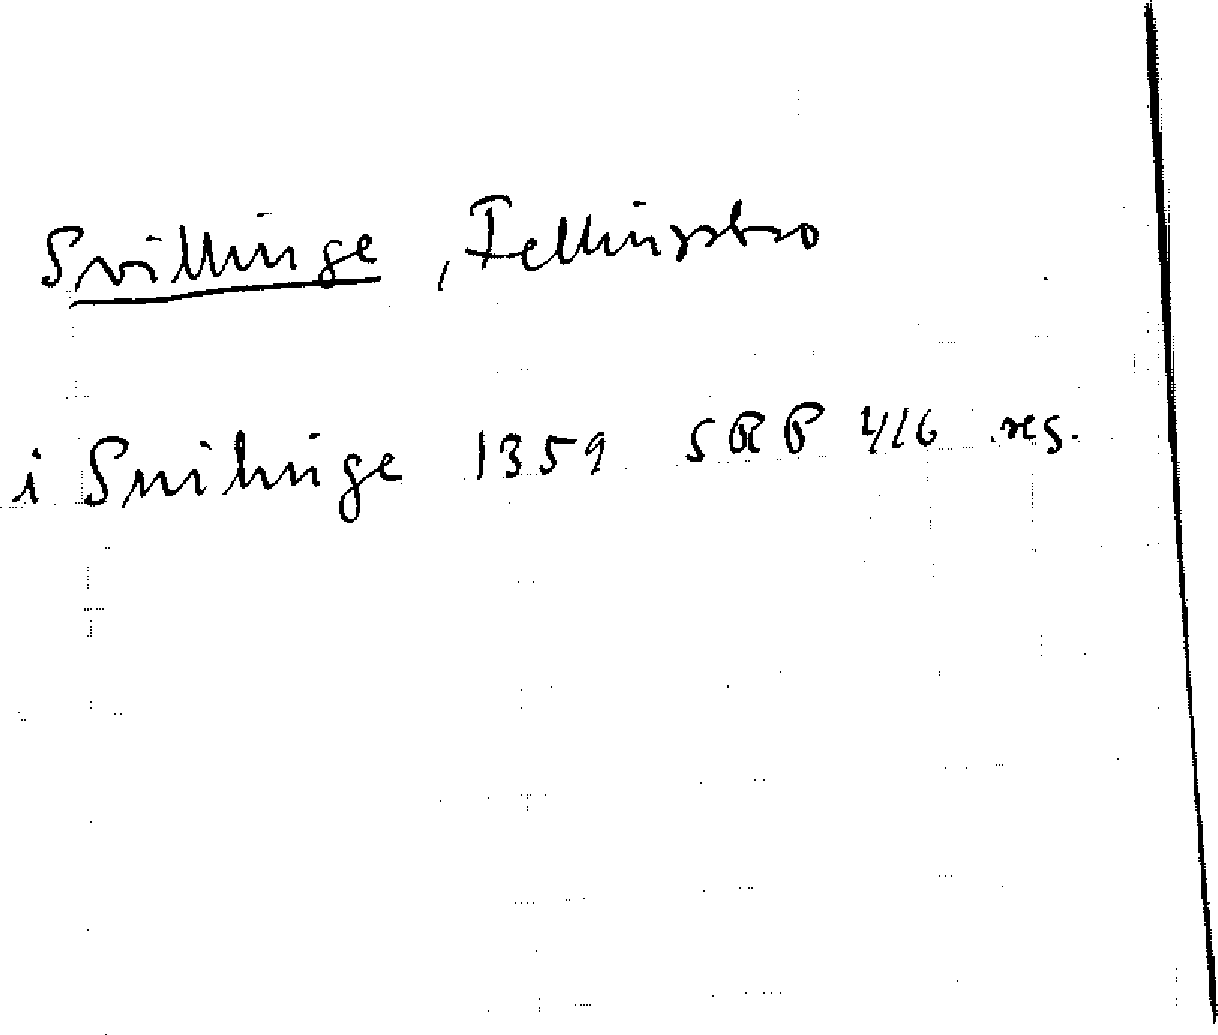 Snillinge, Fellingsbro
i Snilinge 1359 SRP 416 reg.